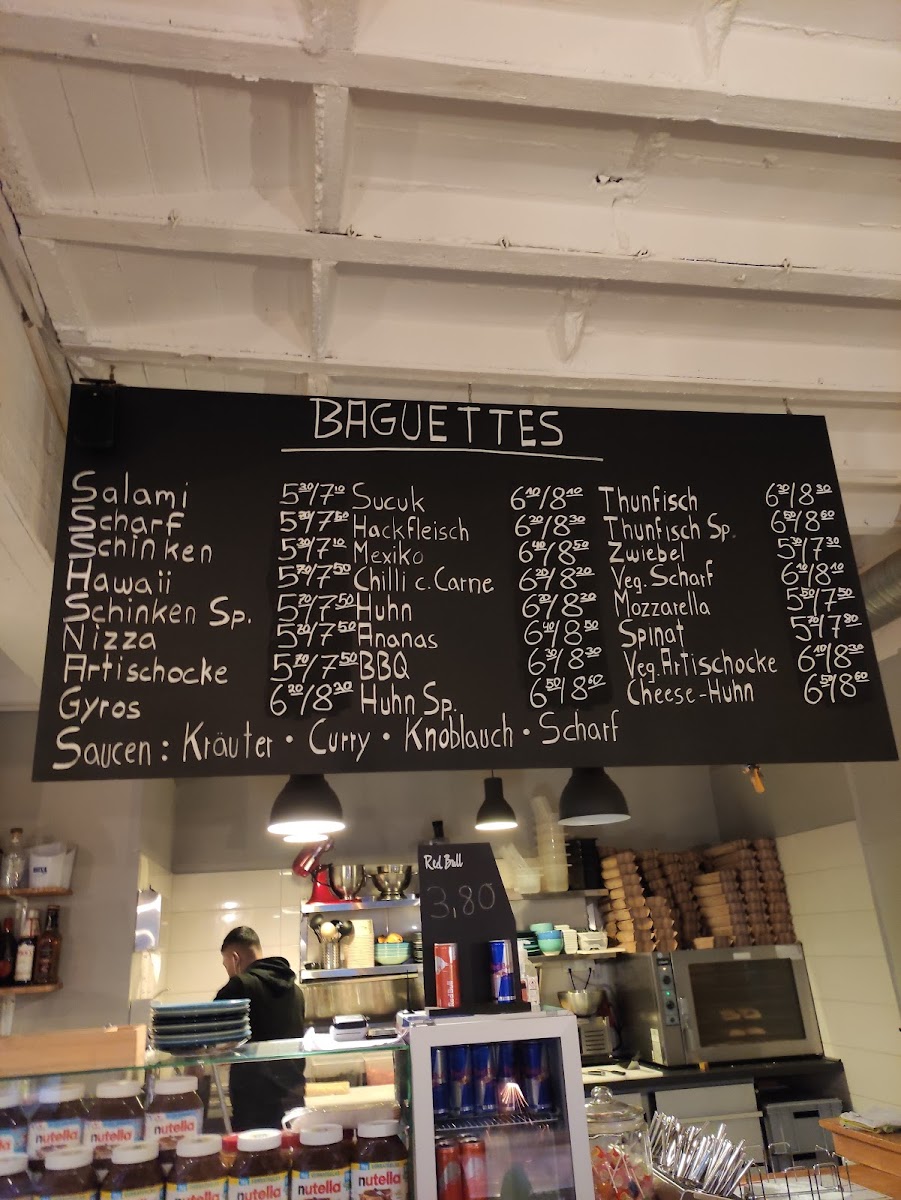 BAGUETTES
Salami 5³⁰/7¹⁰
Scharf 5⁷⁰/7⁵⁰
Schinken 5³⁰/7¹⁰
Hawaii 5⁷⁰/7⁵⁰
Schinken Sp. 5⁷⁰/7⁵⁰
Nizza 5⁷⁰/7⁵⁰
Artischocke 5⁷⁰/7⁵⁰
Gyros 6²⁰/8²⁰
Sucuk 6¹⁰/8¹⁰
Hackfleisch 6²⁰/8³⁰
Mexiko 6⁴⁰/8⁵⁰
Chilli c. Carne 6²⁰/8²⁰
Huhn 6²⁰/8²⁰
Ananas 6⁴⁰/8⁵⁰
BBQ 6³⁰/8³⁰
Huhn Sp. 6⁵⁰/8⁶⁰
Thunfisch 6³⁰/8³⁰
Thunfisch Sp. 6⁵⁰/8⁶⁰
Zwiebel 5³⁰/7³⁰
Veg. Scharf 6¹⁰/8¹⁰
Mozzarella 5⁵⁰/7⁵⁰
Spinat 5⁷⁰/7⁸⁰
Veg. Artischocke 6¹⁰/8³⁰
Cheese-Huhn 6⁵⁰/8⁶⁰
Saucen: Kräuter • Curry • Knoblauch • Scharf
Red Bull
3,80
Red Bull
nutella
nutella
nutella
nutella
nutella
nutella
nutella